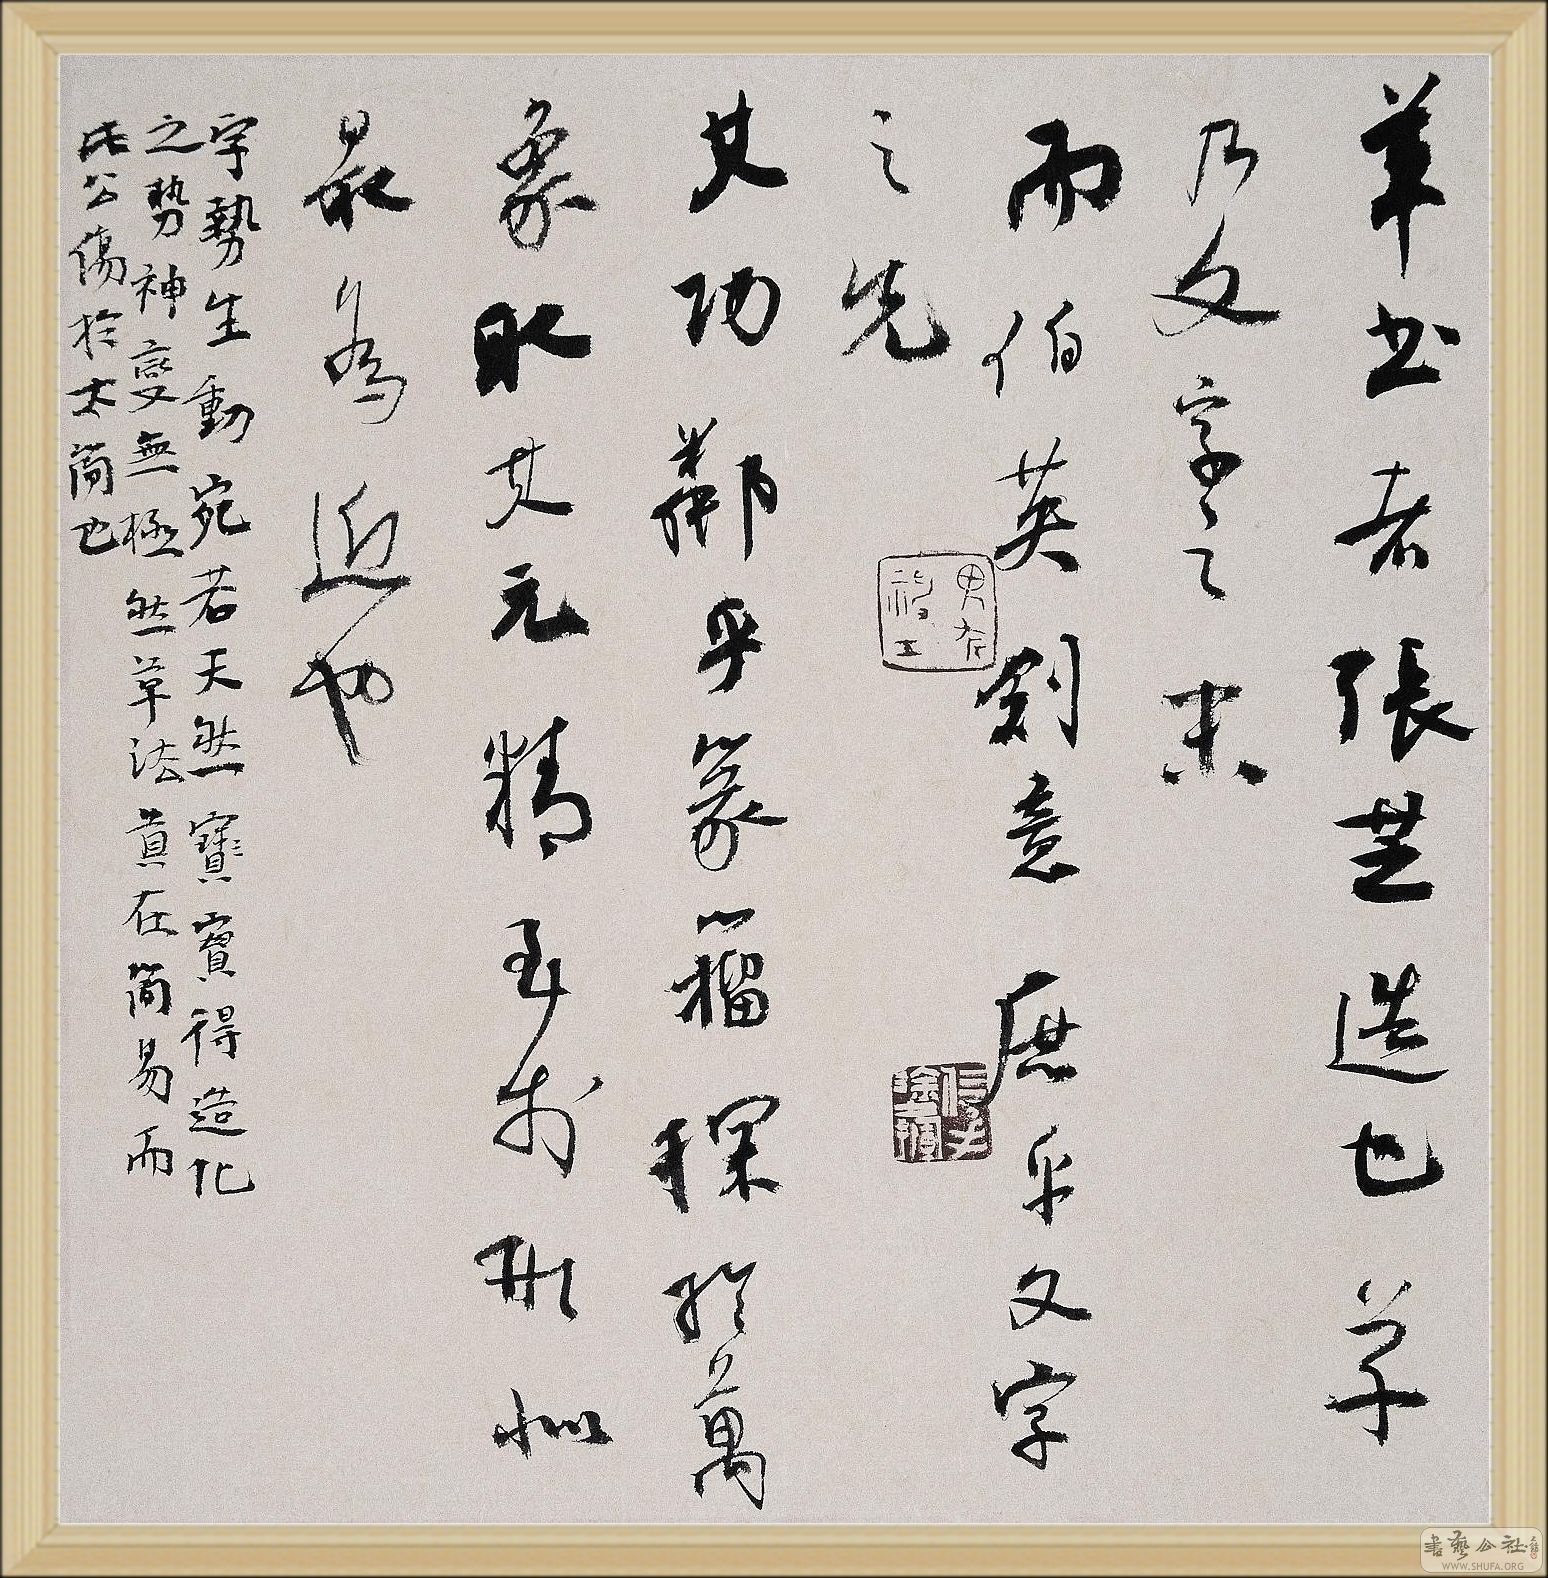 草书者张芝造也草
乃文字之末
而伯英创意庶乎文字
之先
其功鄰乎篆籀探於萬
象取其元精至於形似
最为近也
字勢生動宛若天然實得造化
之势神變無極然草法貴在簡易而
此公傷於太簡也
書藝公社
WWW.SHUFA.ORG